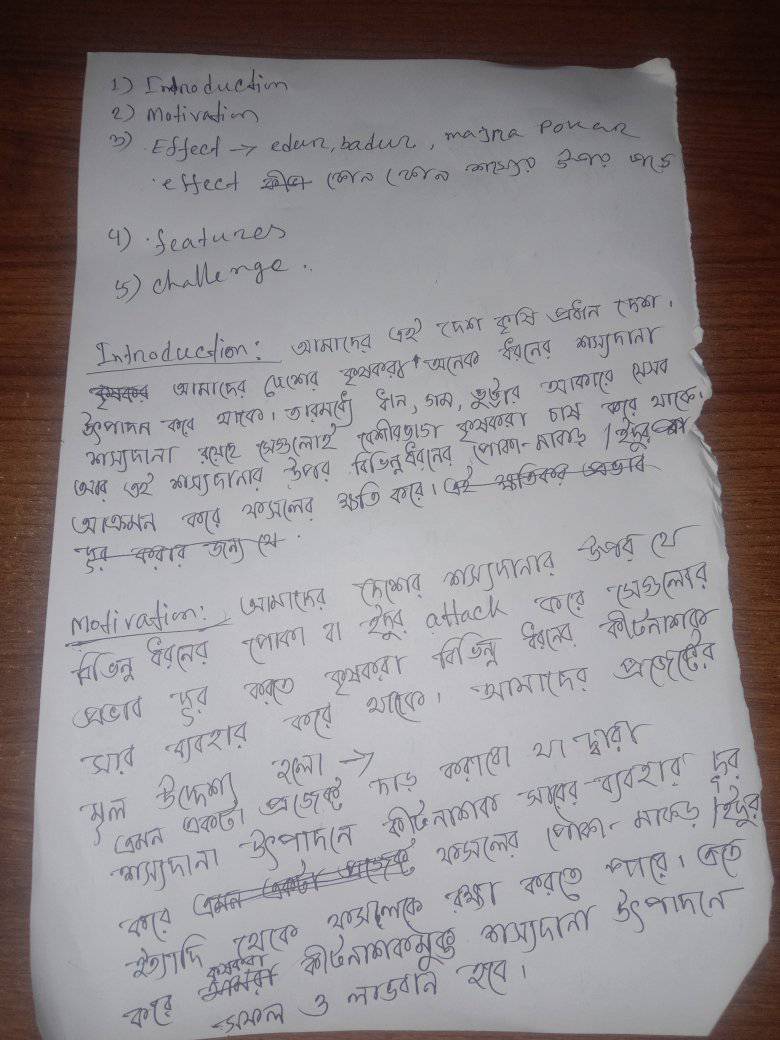 1) Introduction
2) Motivation
3) Effect → edur, badur, majra pokar
effect কোন কোন শস্যের উপর পড়ে
4) . features
5) challenge .
Introduction: আমাদের এই দেশ কৃষি প্রধান দেশ।
কৃষকর আমাদের দেশের কৃষকরা অনেক ধরনের শস্যদানা
উৎপাদন করে থাকে। তারমধ্যে ধান, গম, ভুট্টার আকারে যেসব
শস্যদানা রয়েছে সেগুলোই বেশীরভাগ কৃষকরা চাষ করে থাকে।
আর এই শস্যদানার উপর বিভিন্ন ধরনের পোকা-মাকড় / ইদুর
আক্রমন করে ফসলের ক্ষতি করে। এই ক্ষতিকর প্রভাব
দূর করার জন্য যে
Motivation: আমাদের দেশের শস্যদানার উপর যে
বিভিন্ন ধরনের পোকা বা ইদুর attack করে সেগুলোর
প্রভাব দূর করতে কৃষকরা বিভিন্ন ধরনের কীটনাশক
সার ব্যবহার করে থাকে। আমাদের প্রজেক্টের
মূল উদ্দেশ্য হলো →
এমন একটা প্রজেক্ট দাড় করাবো যা দ্বারা
শস্যদানা উৎপাদনে কীটনাশক সারের ব্যবহার দূর
করে এমন একটা প্রজেক্ট ফসলের পোকা-মাকড় / ইদুর
ইত্যাদি থেকে ফসলকে রক্ষা করতে পারে। এতে
করে আমরা কৃষকরা কীটনাশকমুক্ত শস্যদানা উৎপাদনে
সফল ও লাভবান হবে।